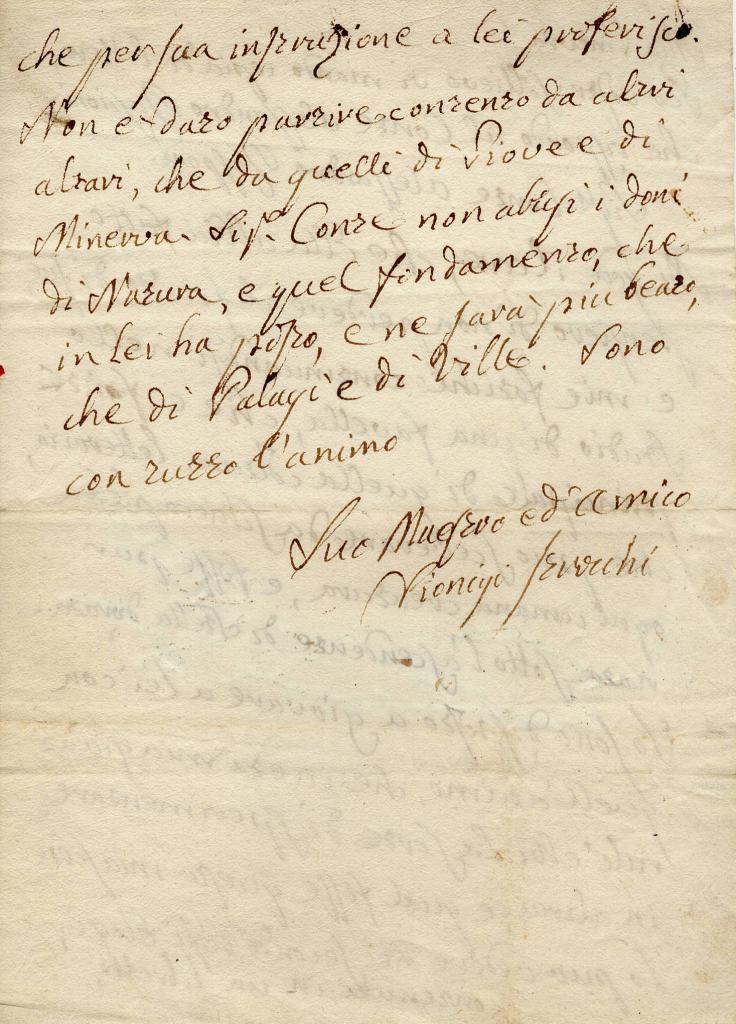 che per sua instruzione a lei proferisco.
Non è dato partire contento da altri
altari, che da quelli di Giove e di
Minerva. Sigr. Conte non abusi i doni
di Natura, e quel fondamento, che
in Lei ha posto, e ne sarà più beato,
che di Palagi e di Ville. Sono
con tutto l'animo
Suo Maestro ed Amico
Dionigi